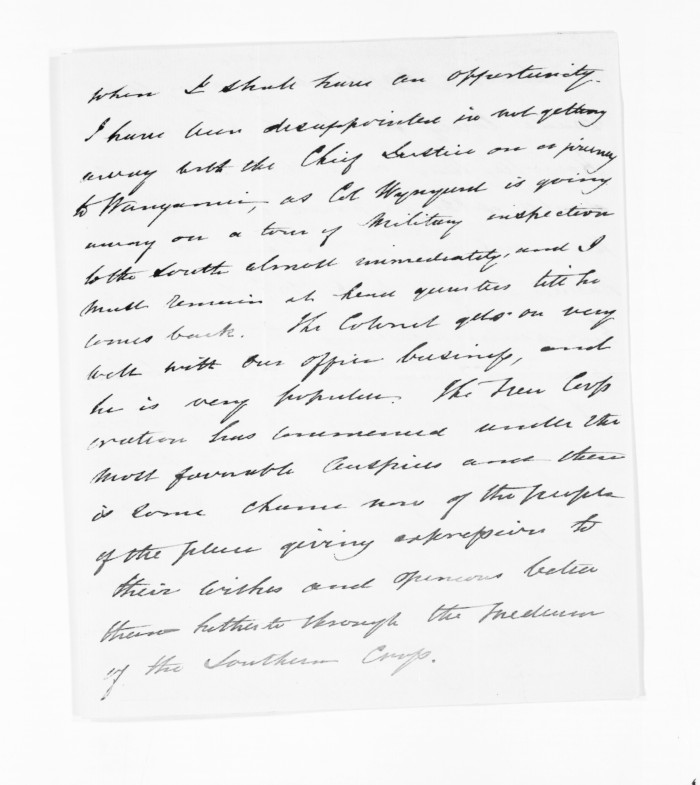 when I shall have an opportunity.
I have been disappointed in not getting
away with the Chief Justice on a journey
to Wanganui, as Col Wynyard is going
away on a tour of Military inspection
to the South almost immediately, and I
must remain at head quarters till he
comes back. The Colonel gets on very
well with our office business, and
he is very popular. The New Corp
oration has commenced under the
most favorable Auspices and there
is some chance now of the people
of the place giving expression to
their wishes and opinions better
than hitherto through the Medium
of the Southern Corp.